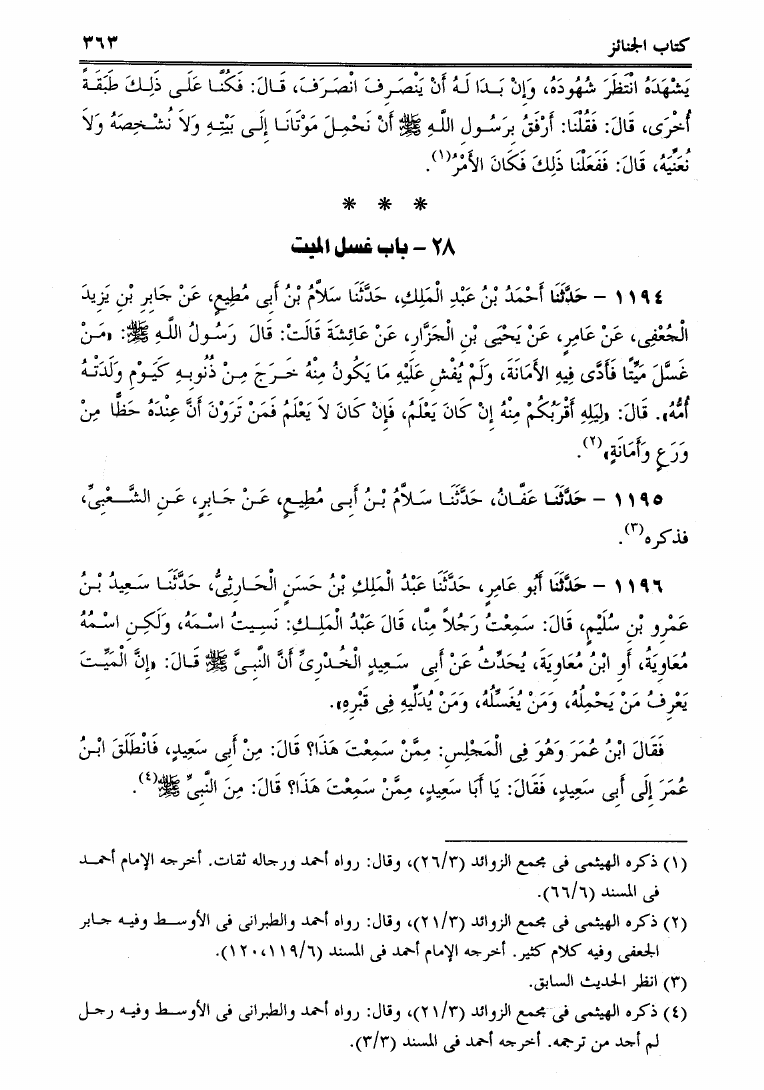 كتاب الجنائز ٣٦٣
يَشْهَدَهُ انْتَظَرَ شُهُودَهُ، وَإِنْ بَدَا لَهُ أَنْ يَنْصَرِفَ انْصَرَفَ، قَالَ: فَكُنَّا عَلَى ذَلِكَ طَبَقَةً
أُخْرَى، قَالَ: فَقُلْنَا: أَرْفَقُ بِرَسُولِ اللَّهِ ﷺ أَنْ نَحْمِلَ مَوْتَانَا إِلَى بَيْتِهِ وَلاَ نُشْخِصَهُ وَلاَ
نُعَنِّيَهُ، قَالَ: فَفَعَلْنَا ذَلِكَ فَكَانَ الأَمْرُ(١).
* * *
٢٨ – باب غسل الميت
١١٩٤ – حَدَّثَنَا أَحْمَدُ بْنُ عَبْدِ الْمَلِكِ، حَدَّثَنَا سَلاَّمُ بْنُ أَبِى مُطِيعٍ، عَنْ جَابِرِ بْنِ يَزِيدَ
الْجُعْفِى، عَنْ عَامِرٍ، عَنْ يَحْيَى بْنِ الْجَزَّارِ، عَنْ عَائِشَةَ قَالَتْ: قَالَ رَسُولُ اللَّهِ ﷺ: «مَنْ
غَسَّلَ مَيِّتًا فَأَدَّى فِيهِ الأَمَانَةَ، وَلَمْ يُفْشِ عَلَيْهِ مَا يَكُونُ مِنْهُ خَرَجَ مِنْ ذُنُوبِهِ كَيَوْمِ وَلَدَتْهُ
أُمُّهُ». قَالَ: «لِيَلِهِ أَقْرَبُكُمْ مِنْهُ إِنْ كَانَ يَعْلَمُ، فَإِنْ كَانَ لاَ يَعْلَمُ فَمَنْ تَرَوْنَ أَنَّ عِنْدَهُ حَظًّا مِنْ
وَرَعٍ وَأَمَانَةٍ»(٢).
١١٩٥ – حَدَّثَنَا عَفَّانُ، حَدَّثَنَا سَلاَّمُ بْنُ أَبِى مُطِيعٍ، عَنْ جَابِرٍ، عَنِ الشَّعْبِىِّ،
فذكره(٣).
١١٩٦ – حَدَّثَنَا أَبُو عَامِرٍ، حَدَّثَنَا عَبْدُ الْمَلِكِ بْنُ حَسَنٍ الْحَارِثِىُّ، حَدَّثَنَا سَعِيدُ بْنُ
عَمْرِو بْنِ سُلَيْمٍ، قَالَ: سَمِعْتُ رَجُلاً مِنَّا، قَالَ عَبْدُ الْمَلِكِ: نَسِيتُ اسْمَهُ، وَلَكِنِ اسْمُهُ
مُعَاوِيَةُ، أَوِ ابْنُ مُعَاوِيَةَ، يُحَدِّثُ عَنْ أَبِى سَعِيدٍ الْخُدْرِىِّ أَنَّ النَّبِىَّ ﷺ قَالَ: «إِنَّ الْمَيِّتَ
يَعْرِفُ مَنْ يَحْمِلُهُ، وَمَنْ يُغَسِّلُهُ، وَمَنْ يُدَلِّيهِ فِى قَبْرِهِ».
فَقَالَ ابْنُ عُمَرَ وَهُوَ فِى الْمَجْلِسِ: مِمَّنْ سَمِعْتَ هَذَا؟ قَالَ: مِنْ أَبِى سَعِيدٍ، فَانْطَلَقَ ابْنُ
عُمَرَ إِلَى أَبِى سَعِيدٍ، فَقَالَ: يَا أَبَا سَعِيدٍ، مِمَّنْ سَمِعْتَ هَذَا؟ قَالَ: مِنَ النَّبِىِّ ﷺ(٤).
(١) ذكره الهيثمى فى مجمع الزوائد (٢٦/٣)، وقال: رواه أحمد ورجاله ثقات. أخرجه الإمام أحمد
فى المسند (٦٦/٦).
(٢) ذكره الهيثمى فى مجمع الزوائد (٢١/٣)، وقال: رواه أحمد والطبرانى فى الأوسط وفيه جابر
الجعفى وفيه كلام كثير. أخرجه الإمام أحمد فى المسند (١٢٠،١١٩/٦).
(٣) انظر الحديث السابق.
(٤) ذكره الهيثمى فى مجمع الزوائد (٢١/٣)، وقال: رواه أحمد والطبرانى فى الأوسط وفيه رجل
لم أجد من ترجمه. أخرجه أحمد فى المسند (٣/٣).